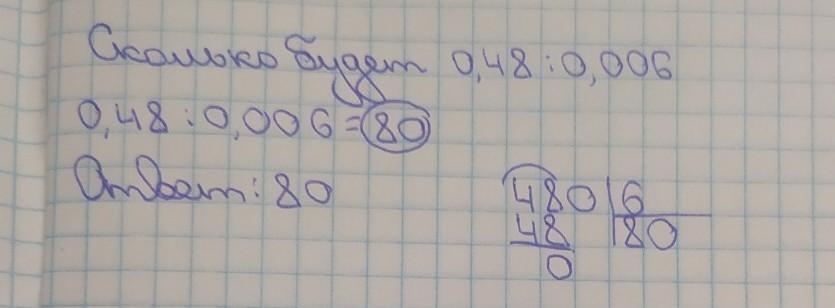 Сколько будет 0,48:0,006
0,48:0,006=80
Ответ: 80
480|6
48 |80
0